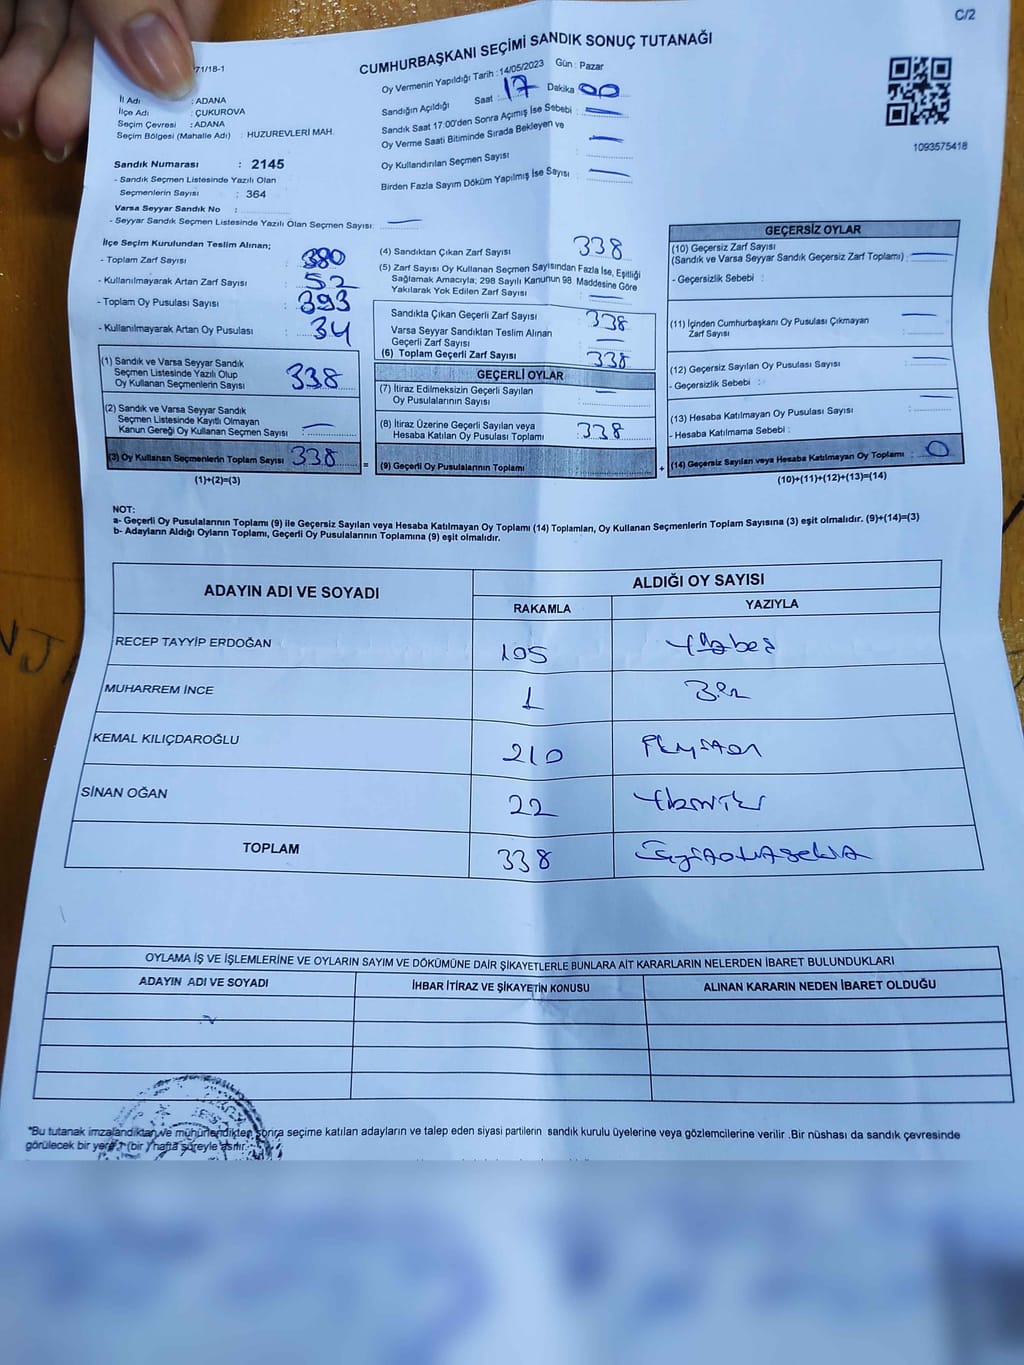 C/2
71/18-1
CUMHURBAŞKANI SEÇİMİ SANDIK SONUÇ TUTANAĞI
İl Adı : ADANA
İlçe Adı : ÇUKUROVA
Seçim Çevresi : ADANA
Seçim Bölgesi (Mahalle Adı) : HUZUREVLERİ MAH.
Sandık Numarası : 2145
- Sandık Seçmen Listesinde Yazılı Olan
Seçmenlerin Sayısı : 364
Varsa Seyyar Sandık No :
- Seyyar Sandık Seçmen Listesinde Yazılı Olan Seçmen Sayısı:
Oy Vermenin Yapıldığı Tarih : 14/05/2023 Gün : Pazar
Sandığın Açıldığı Saat : 17 Dakika 00
Sandık Saat 17:00'den Sonra Açımış İse Sebebi :
Oy Verme Saati Bitiminde Sırada Bekleyen ve
Oy Kullandırılan Seçmen Sayısı
Birden Fazla Sayım Döküm Yapılmış İse Sayısı
1093575418
İlçe Seçim Kurulundan Teslim Alınan;
- Toplam Zarf Sayısı : 380
- Kullanılmayarak Artan Zarf Sayısı : 52
- Toplam Oy Pusulası Sayısı : 393
- Kullanılmayarak Artan Oy Pusulası : 34
(1) Sandık ve Varsa Seyyar Sandık
Seçmen Listesinde Yazılı Olup
Oy Kullanan Seçmenlerin Sayısı : 338
(2) Sandık ve Varsa Seyyar Sandık
Seçmen Listesinde Kayıtlı Olmayan
Kanun Gereği Oy Kullanan Seçmen Sayısı :
(3) Oy Kullanan Seçmenlerin Toplam Sayısı 338
(1)+(2)=(3)
(4) Sandıktan Çıkan Zarf Sayısı 338
(5) Zarf Sayısı Oy Kullanan Seçmen Sayısından Fazla İse, Eşitliği
Sağlamak Amacıyla; 298 Sayılı Kanunun 98. Maddesine Göre
Yakılarak Yok Edilen Zarf Sayısı
Sandıkta Çıkan Geçerli Zarf Sayısı : 338
Varsa Seyyar Sandıktan Teslim Alınan
Geçerli Zarf Sayısı
(6) Toplam Geçerli Zarf Sayısı : 338
GEÇERLİ OYLAR
(7) İtiraz Edilmeksizin Geçerli Sayılan
Oy Pusulalarının Sayısı
(8) İtiraz Üzerine Geçerli Sayılan veya
Hesaba Katılan Oy Pusulası Toplamı : 338
= (9) Geçerli Oy Pusulalarının Toplamı
GEÇERSİZ OYLAR
(10) Geçersiz Zarf Sayısı
(Sandık ve Varsa Seyyar Sandık Geçersiz Zarf Toplamı) :
- Geçersizlik Sebebi :
(11) İçinden Cumhurbaşkanı Oy Pusulası Çıkmayan
Zarf Sayısı
(12) Geçersiz Sayılan Oy Pusulası Sayısı
- Geçersizlik Sebebi :
(13) Hesaba Katılmayan Oy Pusulası Sayısı
- Hesaba Katılmama Sebebi :
+ (14) Geçersiz Sayılan veya Hesaba Katılmayan Oy Toplamı : 0
(10)+(11)+(12)+(13)=(14)
NOT:
a- Geçerli Oy Pusulalarının Toplamı (9) ile Geçersiz Sayılan veya Hesaba Katılmayan Oy Toplamı (14) Toplamları, Oy Kullanan Seçmenlerin Toplam Sayısına (3) eşit olmalıdır. (9)+(14)=(3)
b- Adayların Aldığı Oyların Toplamı, Geçerli Oy Pusulalarının Toplamına (9) eşit olmalıdır.
ADAYIN ADI VE SOYADI ALDIĞI OY SAYISI
RAKAMLA YAZIYLA
RECEP TAYYİP ERDOĞAN 105 Yüzbeş
MUHARREM İNCE 1 Bir
KEMAL KILIÇDAROĞLU 210
SİNAN OĞAN 22
TOPLAM 338
OYLAMA İŞ VE İŞLEMLERİNE VE OYLARIN SAYIM VE DÖKÜMÜNE DAİR ŞİKAYETLERLE BUNLARA AİT KARARLARIN NELERDEN İBARET BULUNDUKLARI
ADAYIN ADI VE SOYADI İHBAR İTİRAZ VE ŞİKAYETİN KONUSU ALINAN KARARIN NEDEN İBARET OLDUĞU
*Bu tutanak imzalandıktan ve mühürlendikten sonra seçime katılan adayların ve talep eden siyasi partilerin sandık kurulu üyelerine veya gözlemcilerine verilir .Bir nüshası da sandık çevresinde
görülecek bir yere 1 (bir ) hafta süreyle asılır.